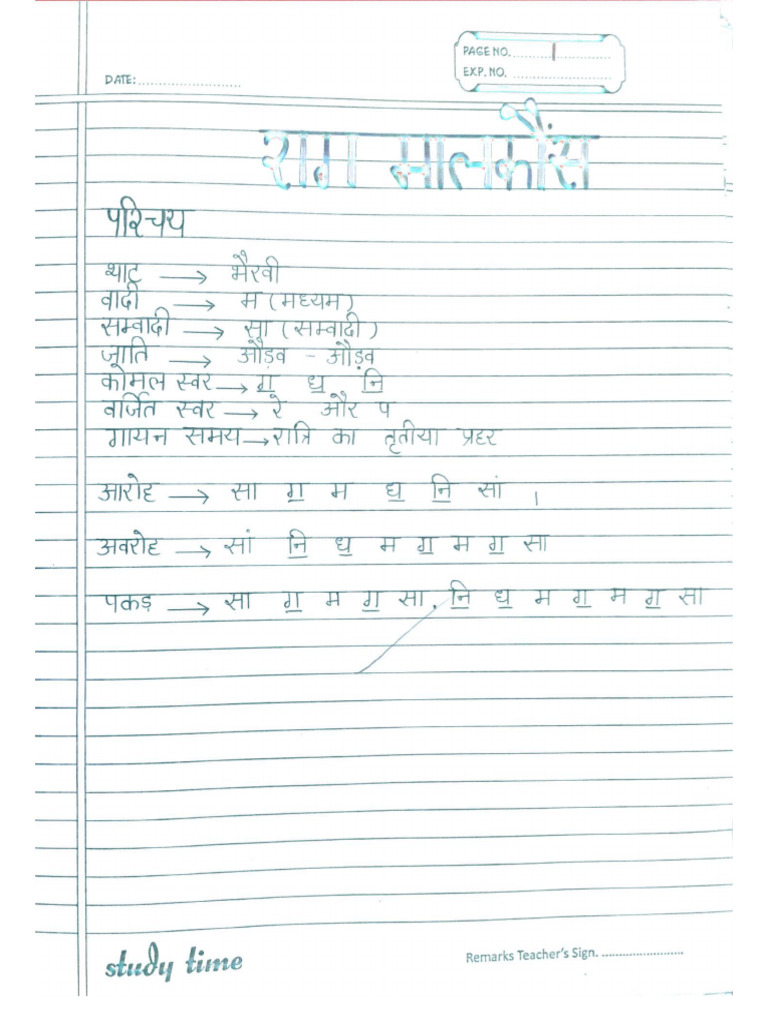 PAGE NO. 1
DATE:
EXP. NO.
राग मालकौंस
परिचय
थाट → भैरवी
वादी → म (मध्यम)
सम्वादी → सा (सम्वादी)
जाति → औड़व - औड़व
कोमल स्वर → ग॒ ध॒ नि॒
वर्जित स्वर → रे और प
गायन समय → रात्रि का तृतीया प्रहर
आरोह → सा ग॒ म ध॒ नि॒ सां ।
अवरोह → सां नि॒ ध॒ म ग॒ म ग॒ सा
पकड़ → सा ग॒ म ग॒ सा, नि॒ ध॒ म ग॒ म ग॒ सा
study time
Remarks Teacher's Sign.